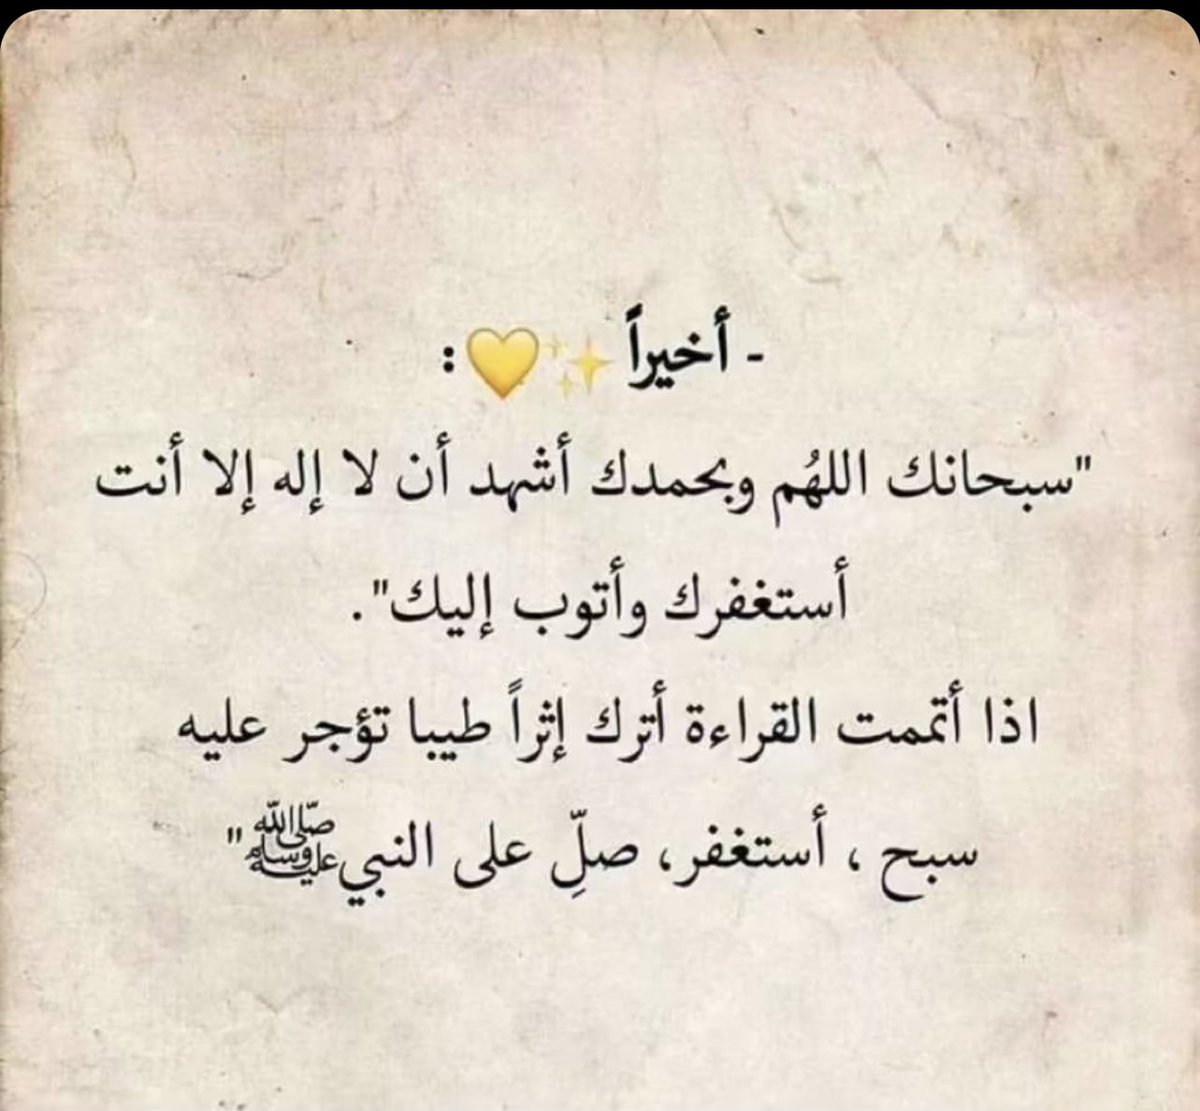 - أخيراً ✨💛 :
"سبحانك اللهُم وبحمدك أشهد أن لا إله إلا أنت
أستغفرك وأتوب إليك".
اذا أتممت القراءة أترك إثراً طيبا تؤجر عليه
سبح ، أستغفر، صلِّ على النبيﷺ"